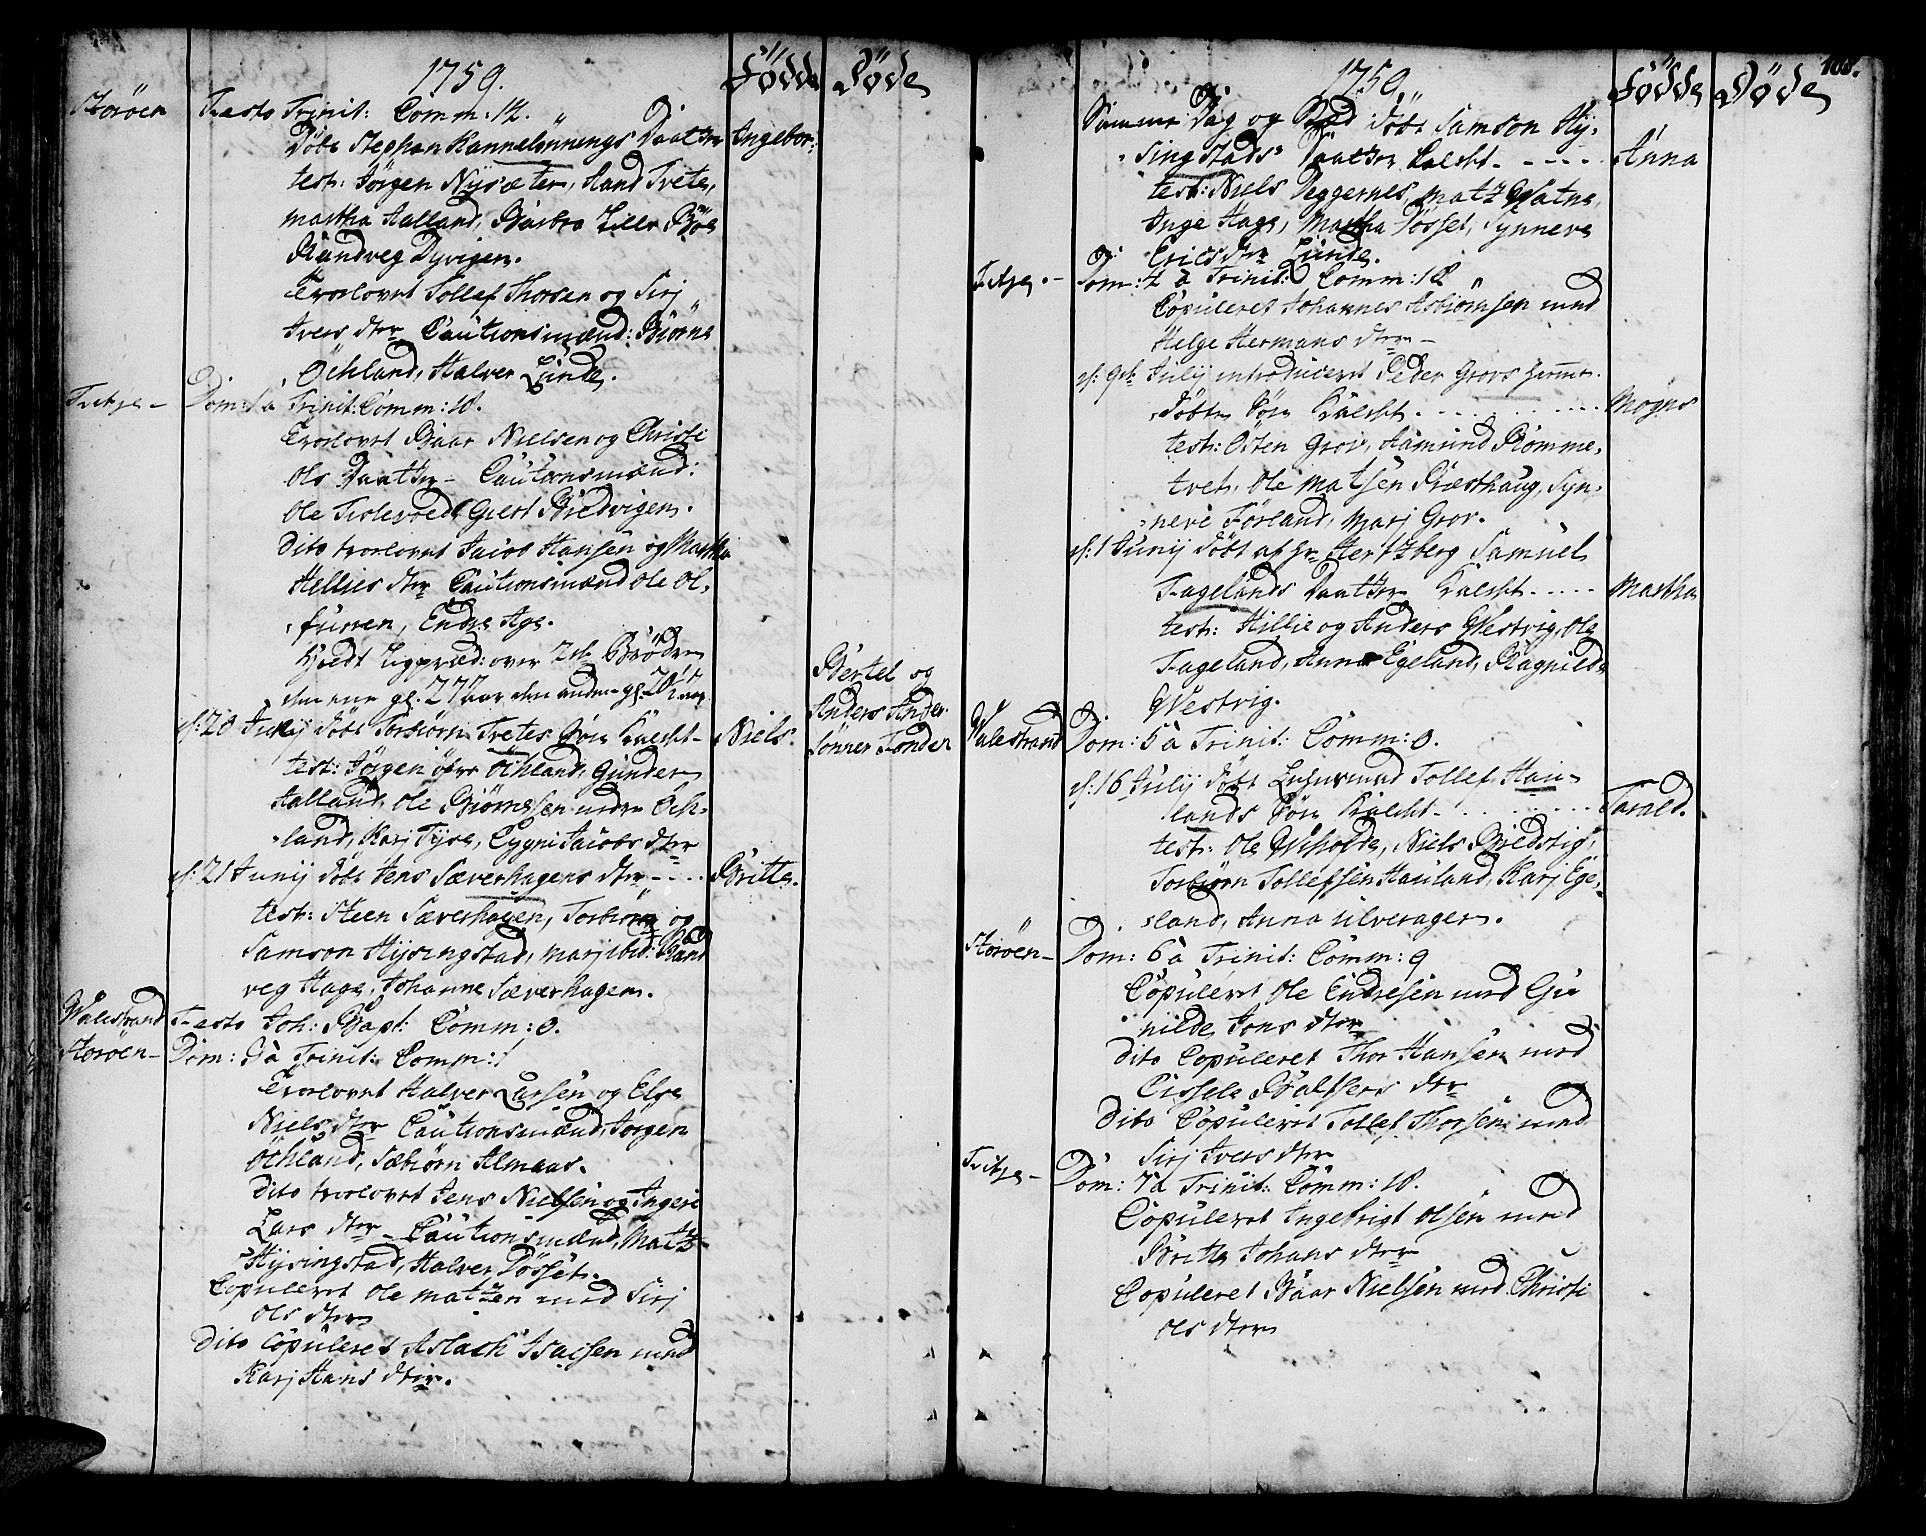 1759.
Födde
Döde
Storöen
Festo Trinit: Comm: 12.
Döbt Stephan Kannelönnings Daatter
Angebor:
test: Jörgen Nysæter, Hand Tvete,
Martha Aalland, Barbra Lille Böe
Randveg Dyvigen.
Trolovet Tollef Thorsen og Siri
Ivers dtr Cautionsmænd: Biörne
Öchland, Halver Lunde.
Fitje -
Dom: 1 a Trinit: Comm: 18.
Trolovet Baar Nielsen og Christi
Ols Daatter - Cautionsmænd:
Ole Tislevold Giert Bredvigen.
Dito trolovet Jacob Hansen og Martha
Hellies dtr Cautionsmænd Ole Ol-
, Endre Age.
holdt Ligpræd: over 2de Brödre
den ene gl. 27 aar den anden gl. 21 aar
Bertel og
Anders Ander
sönner Fonder
d: 20 Junij döbt Torbiörn Tvetes Sön kaldt -
Niels.
test: Jörgen öfre Öchland, Gunder
Aalland, Ole Biörnesen nedre Öch-
land, Kari Tyse, Eygni Jacobs dtr
d: 21 Junij döbt Jens Sæverhagens dtr - - - -
Britte.
test: Steen Sæverhagen, Torbiörn og
Samson Hysingstad, Marj ibid: Rand
veg Hage, Johanne Sæverhagen.
Walestrand
Festo Joh: Bapt: Comm: 0.
Storöen -
Dom: 3 à Trinit: Comm: 1
Trolovet Halver Larsen og Else
Niels dtr Cautionsmænd, Jörgen
Öchland, Sæbiörn Almaas.
Dito trolovet Jens Nielsen og Ingeri
Lars dtr - Cautionsmænd, Matz
Hysingstad, Halver Dösset.
Copuleret Ole Matzen med Siri
Ols dtr
Dito Copuleret Aslach Isacsen med
Karj Hans dtr.
1759.
Födde
Döde
100.
Samme Dag og Sted döbt Samson Hy-
singstads Daatter kaldt - - - - -
Anna
test: Niels Teggernes, Matz Watne,
Inge Hage, Martha Dösset, Synneve
Erics dtr Lunde.
Fitje. -
Dom: 4 a Trinit: Comm: 18
Copuleret Johannes Asbiörnsen med
Helge Hermans dtr -
d: 9de Julij introduceret Peder Grovs
döbte Sön kaldt - - - -
Mogns
test: Osten Grov, Aamund Römme-
tvet, Ole Matsen Præsthaug, Syn-
neve Förland, Marj Grov.
d: 1 Junij döbt af hr Hertzberg Samuel
Fagelands Daatter kaldt - - - - -
Martha
test: Hillie og Anders Westvig, Ole
Fageland, Anna Egeland, Ragnilde
Westvig.
Walestrand
Dom: 5 à Trinit: Comm: 0.
d: 16 Julij döbt Leusmand Tollef Hau-
lands Sön kaldt - - - - -
Tarald.
test: Ole Wiholde, Niels Bredstig,
Torbiörn Tollefsen Hauland, Karj Ege-
land, Anna Ulveragen.
Storöen -
Dom: 6 à Trinit: Comm: 9
Copuleret Ole Endresen med Gu
nilde Jons dtr
Dito Copuleret Thor Hansen med
Cissele Baltsers dtr
Dito Copuleret Tollef Thorsen med
Siri Ivers dtr
Fitje -
Dom: 7 à Trinit: Comm: 18.
Copuleret Ingebrigt Olsen med
Britte Johans dtr
Copuleret Baar Nielsen med Christi
Ols dtr